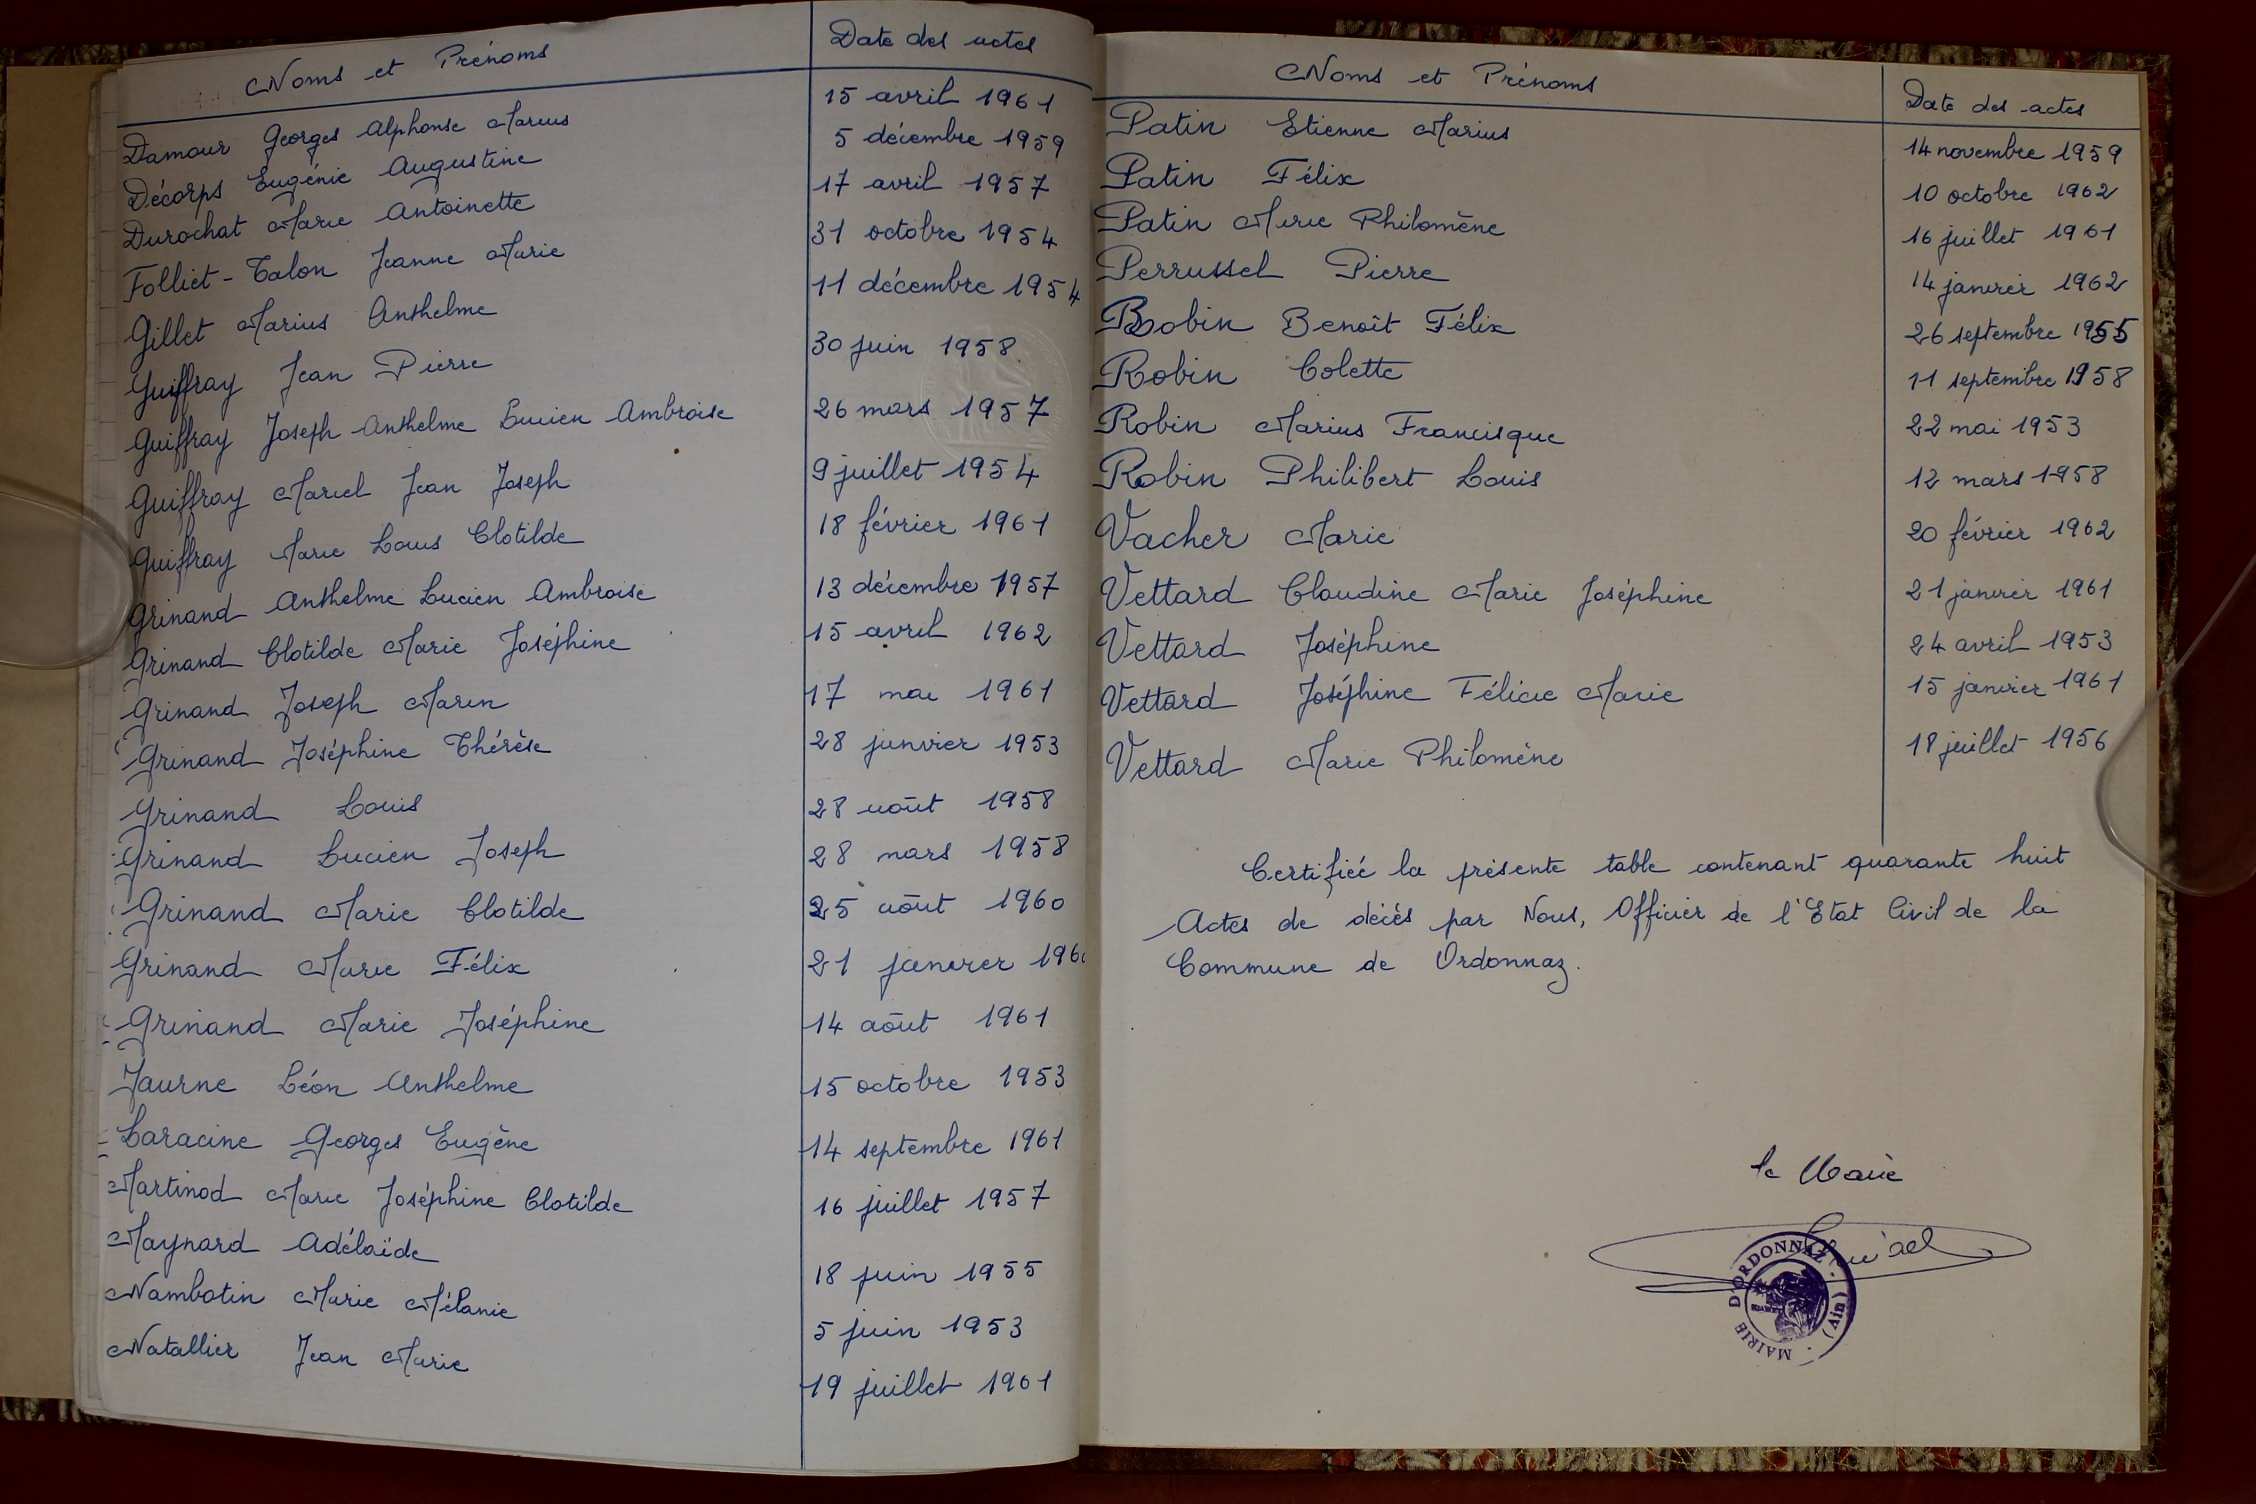 Noms et Prénoms Date des actes
Damour Georges Alphonse Marius 15 avril 1961
Décorps Eugénie Augustine 5 décembre 1959
Durochat Marie Antoinette 17 avril 1957
Folliet-Talon Jeanne Marie 31 octobre 1954
Gillet Marius Anthelme 11 décembre 1954
Guiffray Jean Pierre 30 juin 1958
Guiffray Joseph Anthelme Lucien Ambroise 26 mars 1957
Guiffray Marcel Jean Joseph 9 juillet 1954
Guiffray Marie Louis Clotilde 18 février 1961
Grinand Anthelme Lucien Ambroise 13 décembre 1957
Grinand Clotilde Marie Joséphine 15 avril 1962
Grinand Joseph Marin 17 mai 1961
Grinand Joséphine Thérèse 28 janvier 1953
Grinand Louis 28 août 1958
Grinand Lucien Joseph 28 mars 1958
Grinand Marie Clotilde 25 août 1960
Grinand Marie Félix 21 janvier 1960
Grinand Marie Joséphine 14 août 1961
Jaurne Léon Anthelme 15 octobre 1953
Laracine Georges Eugène 14 septembre 1961
Martinod Marie Joséphine Clotilde 16 juillet 1957
Maynard Adélaïde 18 juin 1955
Nambotin Marie Mélanie 5 juin 1953
Natallier Jean Marie 19 juillet 1961
Noms et Prénoms Date des actes
Patin Etienne Marius 14 novembre 1959
Patin Félix 10 octobre 1962
Patin Marie Philomène 16 juillet 1961
Perrussel Pierre 14 janvier 1962
Robin Benoît Félix 26 septembre 1955
Robin Colette 11 septembre 1958
Robin Marius Francisque 22 mai 1953
Robin Philibert Louis 12 mars 1958
Vacher Marie 20 février 1962
Vettard Claudine Marie Joséphine 21 janvier 1961
Vettard Joséphine 24 avril 1953
Vettard Joséphine Félicie Marie 15 janvier 1961
Vettard Marie Philomène 18 juillet 1956
Certifiée la présente table contenant quarante huit
Actes de décès par Nous, Officier de l'Etat Civil de la
Commune de Ordonnaz.
le Maire
MAIRIE D'ORDONNAZ (Ain)